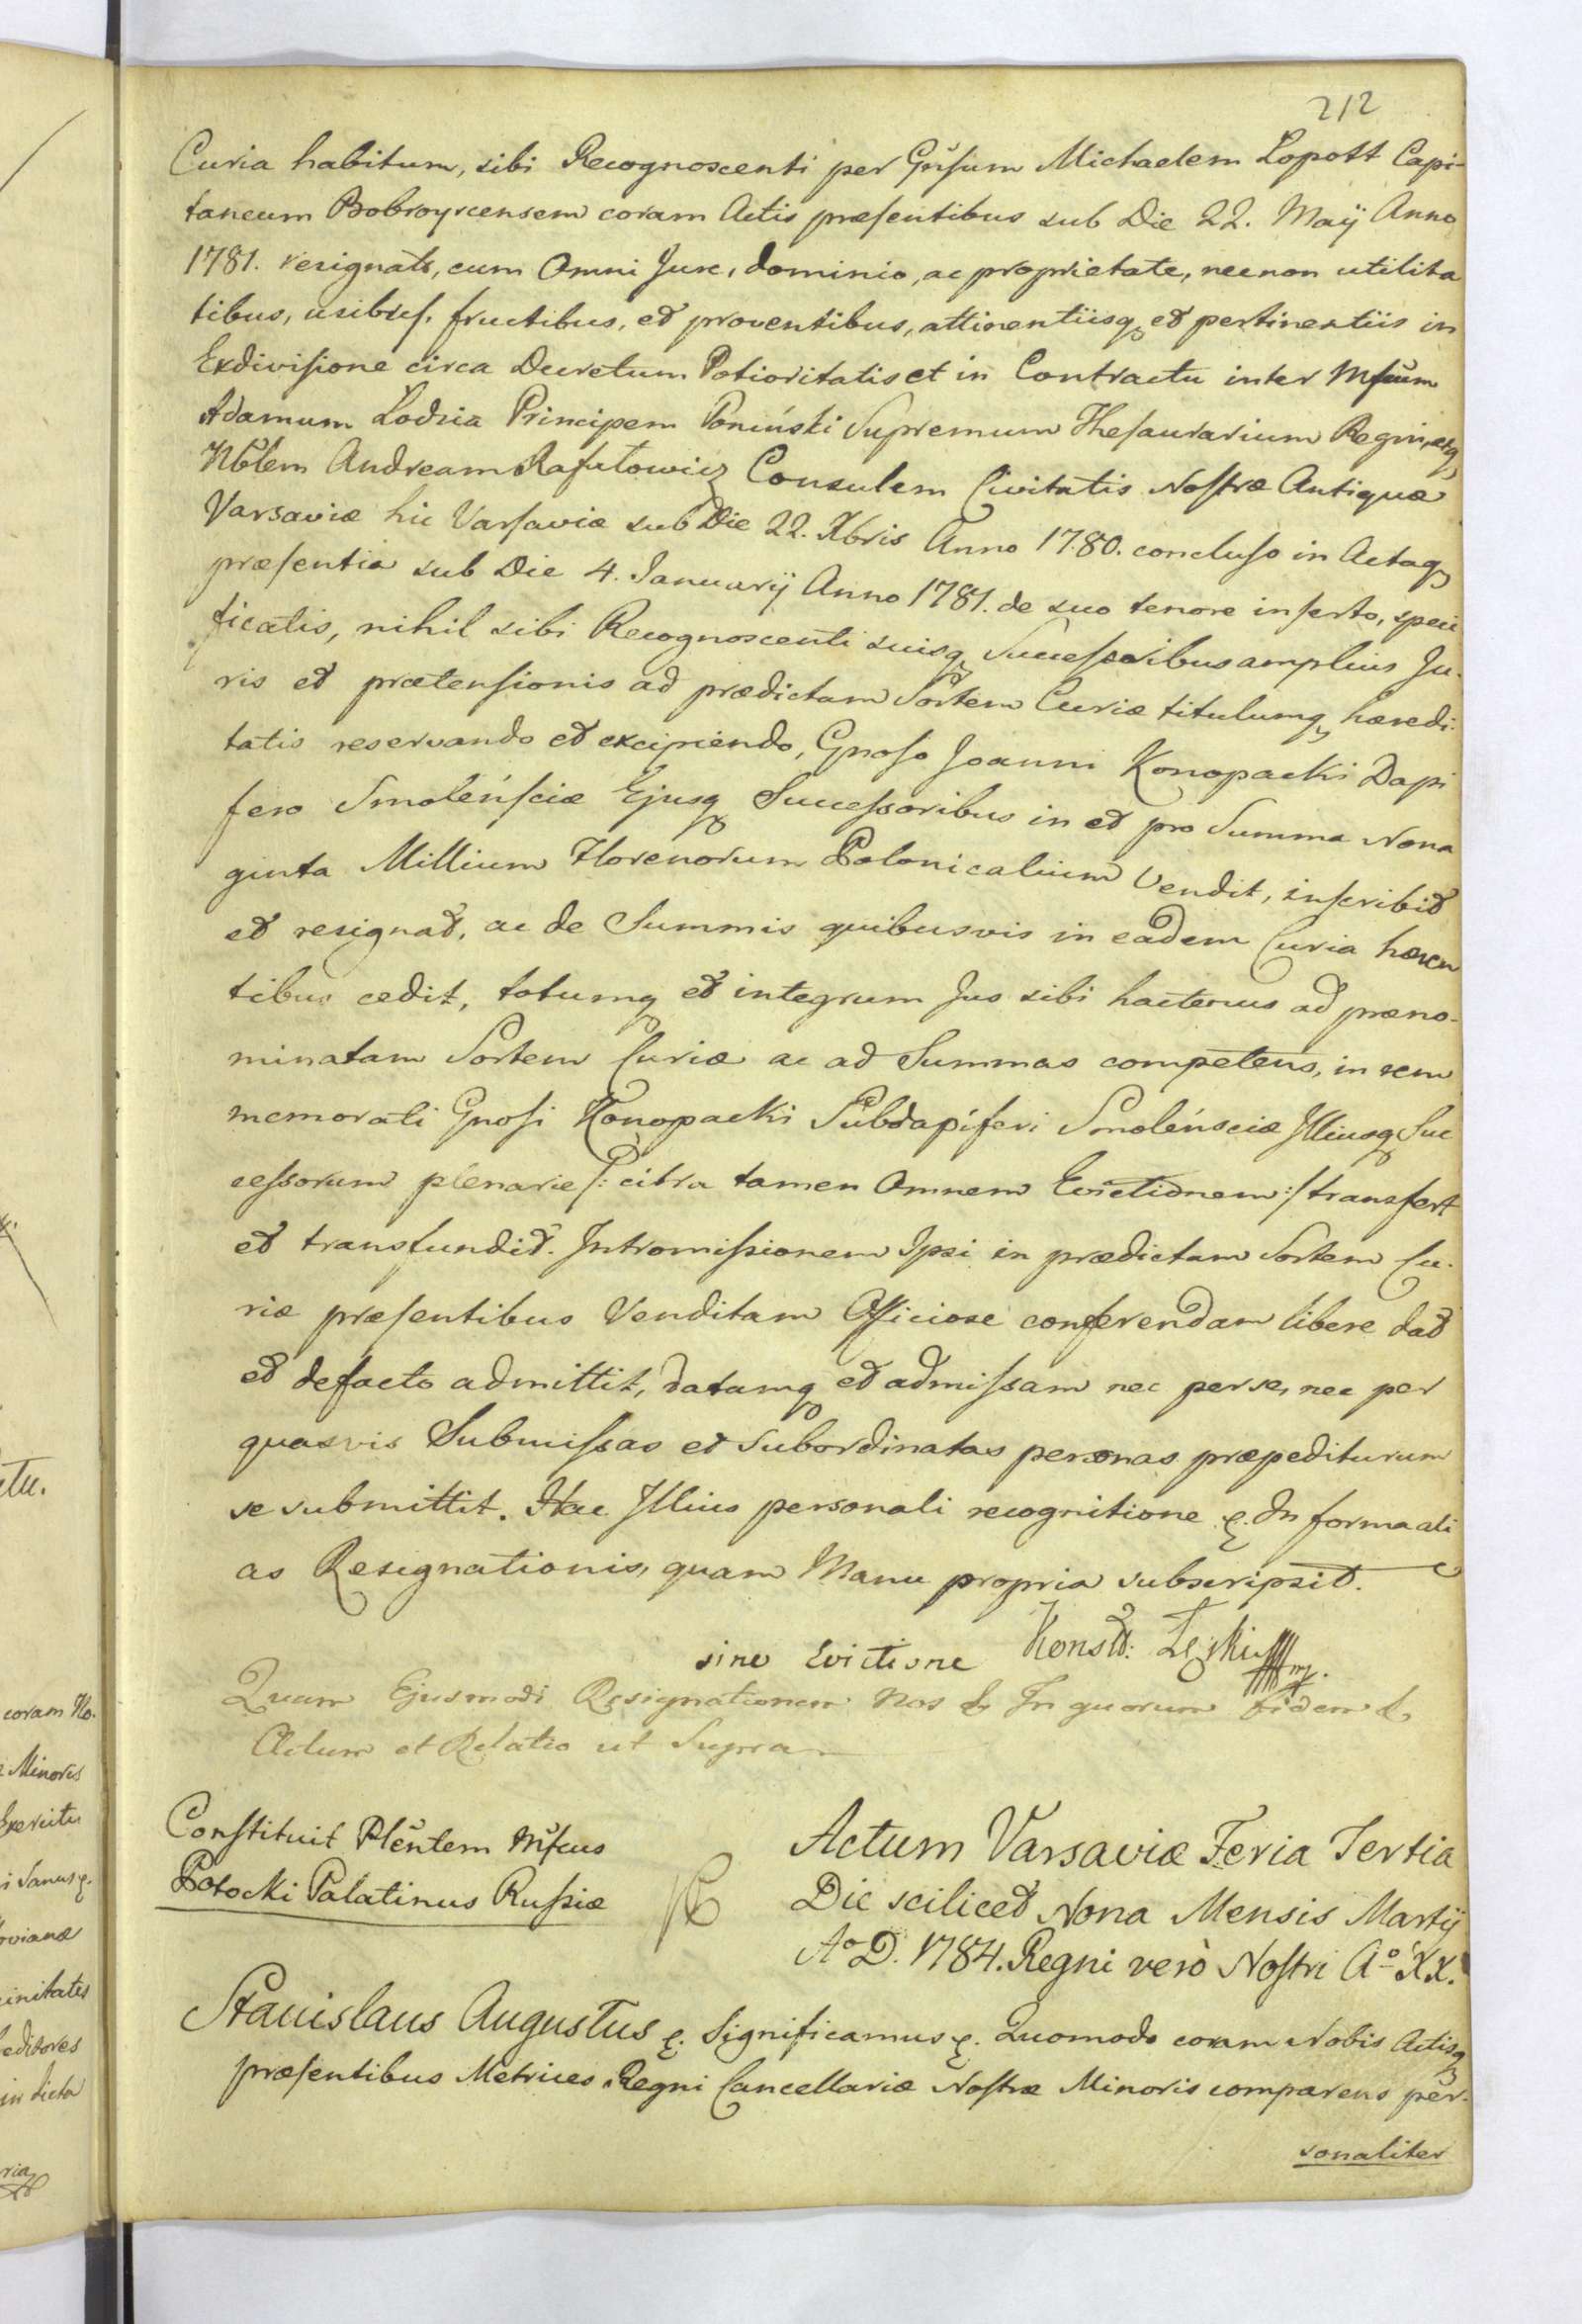 212
Curia habitum, sibi Recognoscenti per Gn̄sum Michaelem Lopott Capi-
taneum Bobroyscensem coram Actis præsentibus sub Die 22. Maÿ Anno
1781. resignats, cum Omni Jure, dominio, ac proprietate, necnon utilita
tibus, usibus, fructibus, et proventibus, attinentiisq et pertinentiis in
Exdivisione circa Decretum Potioritatis et in Contractu inter Mfcum
Adamum Lodzia Principem Poniński Supremum Thesaurarium Regni, etq
Nblem Andream Rafałowicz Consulem Civitatis Nostræ Antiquæ
Varsaviæ hic Varsaviæ sub Die 22. Xbris Anno 1780. concluso in Actaq
præsentia sub Die 4. Januarÿ Anno 1781. de suo tenore inserto, speci
ficatis, nihil sibi Recognoscenti suisq Successoribus amplius Ju-
ris et prætensionis ad prædictam Sortem Curiæ titulumq hæredi-
tatis reservando et excipiendo, Gnoso Joanni Konopacki Dapi
fero Smoleńsciæ Ejusq Successoribus in et pro Summa Nona
ginta Millium Florenorum Polonicalium Vendit, inscribit
et resignat, ac de Summis quibusvis in eadem Curia hæren
tibus cedit, totumq et integrum Jus sibi hactenus ad præno-
minatam Sortem Curiæ ac ad Summas competens, in rem
memorati Gnosi Konopacki Subdapiferi Smoleńsciæ Illiusq Suc
cessorum plenarie /: citra tamen Omnem Evictionem :/ transfert
et transfundit. Intromissionem Ipsi in prædictam Sortem Cu-
riæ præsentibus Venditam Officiose conferendam libere dat
et defacto admittit, datamq et admissam nec per se, nec per
quasvis Submissas et Subordinatas personas præpediturum
se submittit. Hac Illius personali recognitione &. In forma ali
as Resignationis, quam Manu propria subscripsit.
sine Evictione Konst: Łęski mp.
Quam Ejusmodi Resignationem Nos & In quorum fidem &
Actum et Relatio ut Supra
Constituit Plentem Mfcus
Potocki Palatinus Russiæ
Actum Varsaviæ Feria Tertia
Die scilicet Nona Mensis Martÿ
A° D. 1784. Regni verò Nostri A° XX.
Stanislaus Augustus &. Significamus &. Quomodo coram Nobis Actisq
præsentibus Metrices Regni Cancellariæ Nostræ Minoris comparens per-
sonaliter
coram No.
Minoris
Exercitus
oviana
editores
in dicta